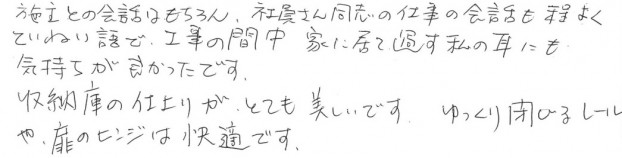 施主との会話はもちろん、社員さん同志の仕事の会話も程よく
ていねい語で、工事の間中 家に居て過す私の耳にも
気持ちが良かったです。
収納庫の仕上りが、とても美しいです。 ゆっくり閉びるレール
や、扉のヒンジは快適です。